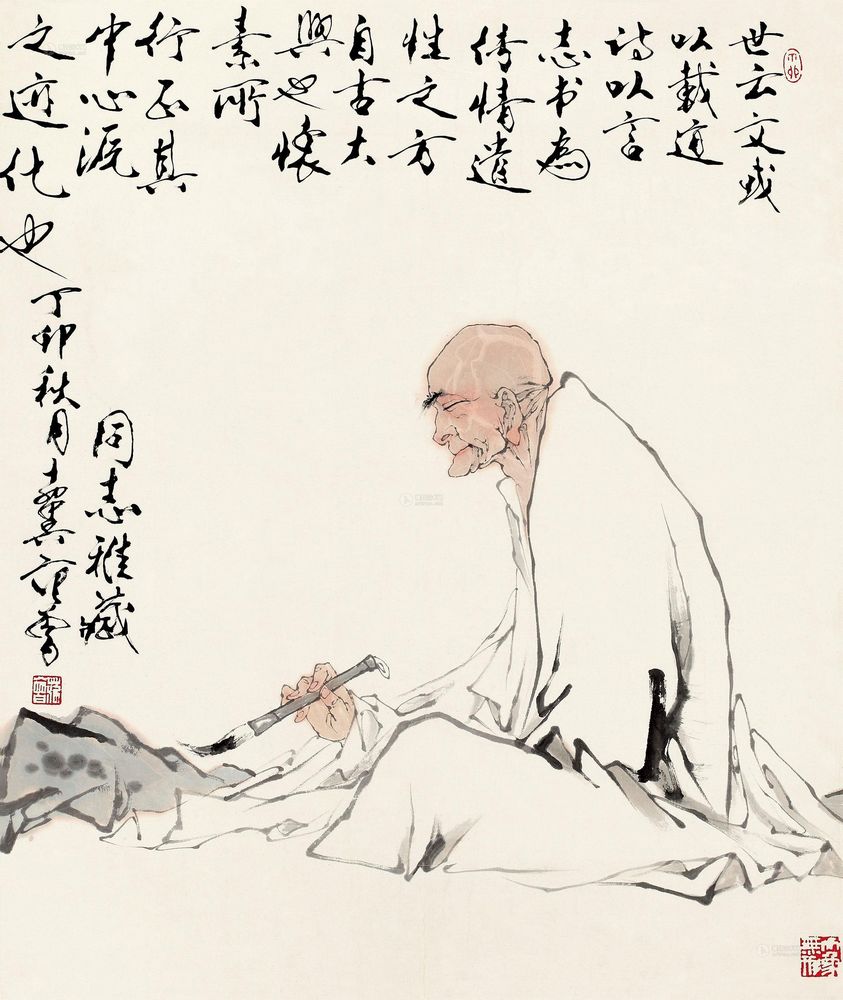 世云文或
以載道
诗以言
志书為
倚情遣
性之方
自古大
興也懷
素所
行正其
中心源
之迹化也
丁卯秋月十翼范曾
同志雅藏